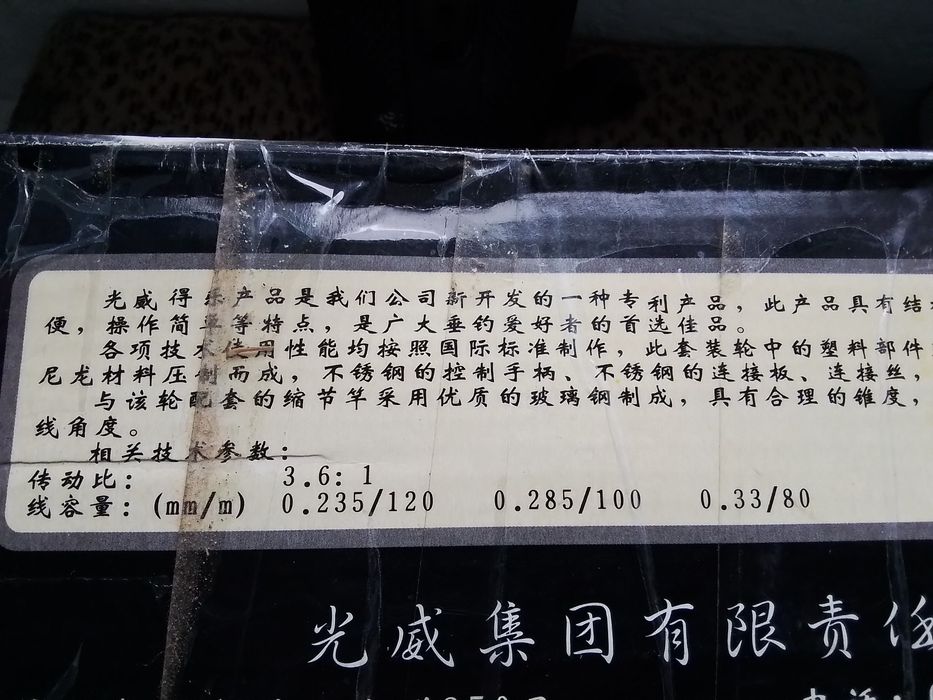 光威得乐产品是我们公司新开发的一种专利产品，此产品具有结
便，操作简单等特点，是广大垂钓爱好者的首选佳品。
各项技术使用性能均按照国际标准制作，此套装轮中的塑料部件
尼龙材料压制而成，不锈钢的控制手柄、不锈钢的连接板、连接丝，
与该轮配套的缩节竿采用优质的玻璃钢制成，具有合理的锥度，
线角度。
相关技术参数：
传动比： 3.6：1
线容量：(mm/m) 0.235/120 0.285/100 0.33/80
光威集团有限责任